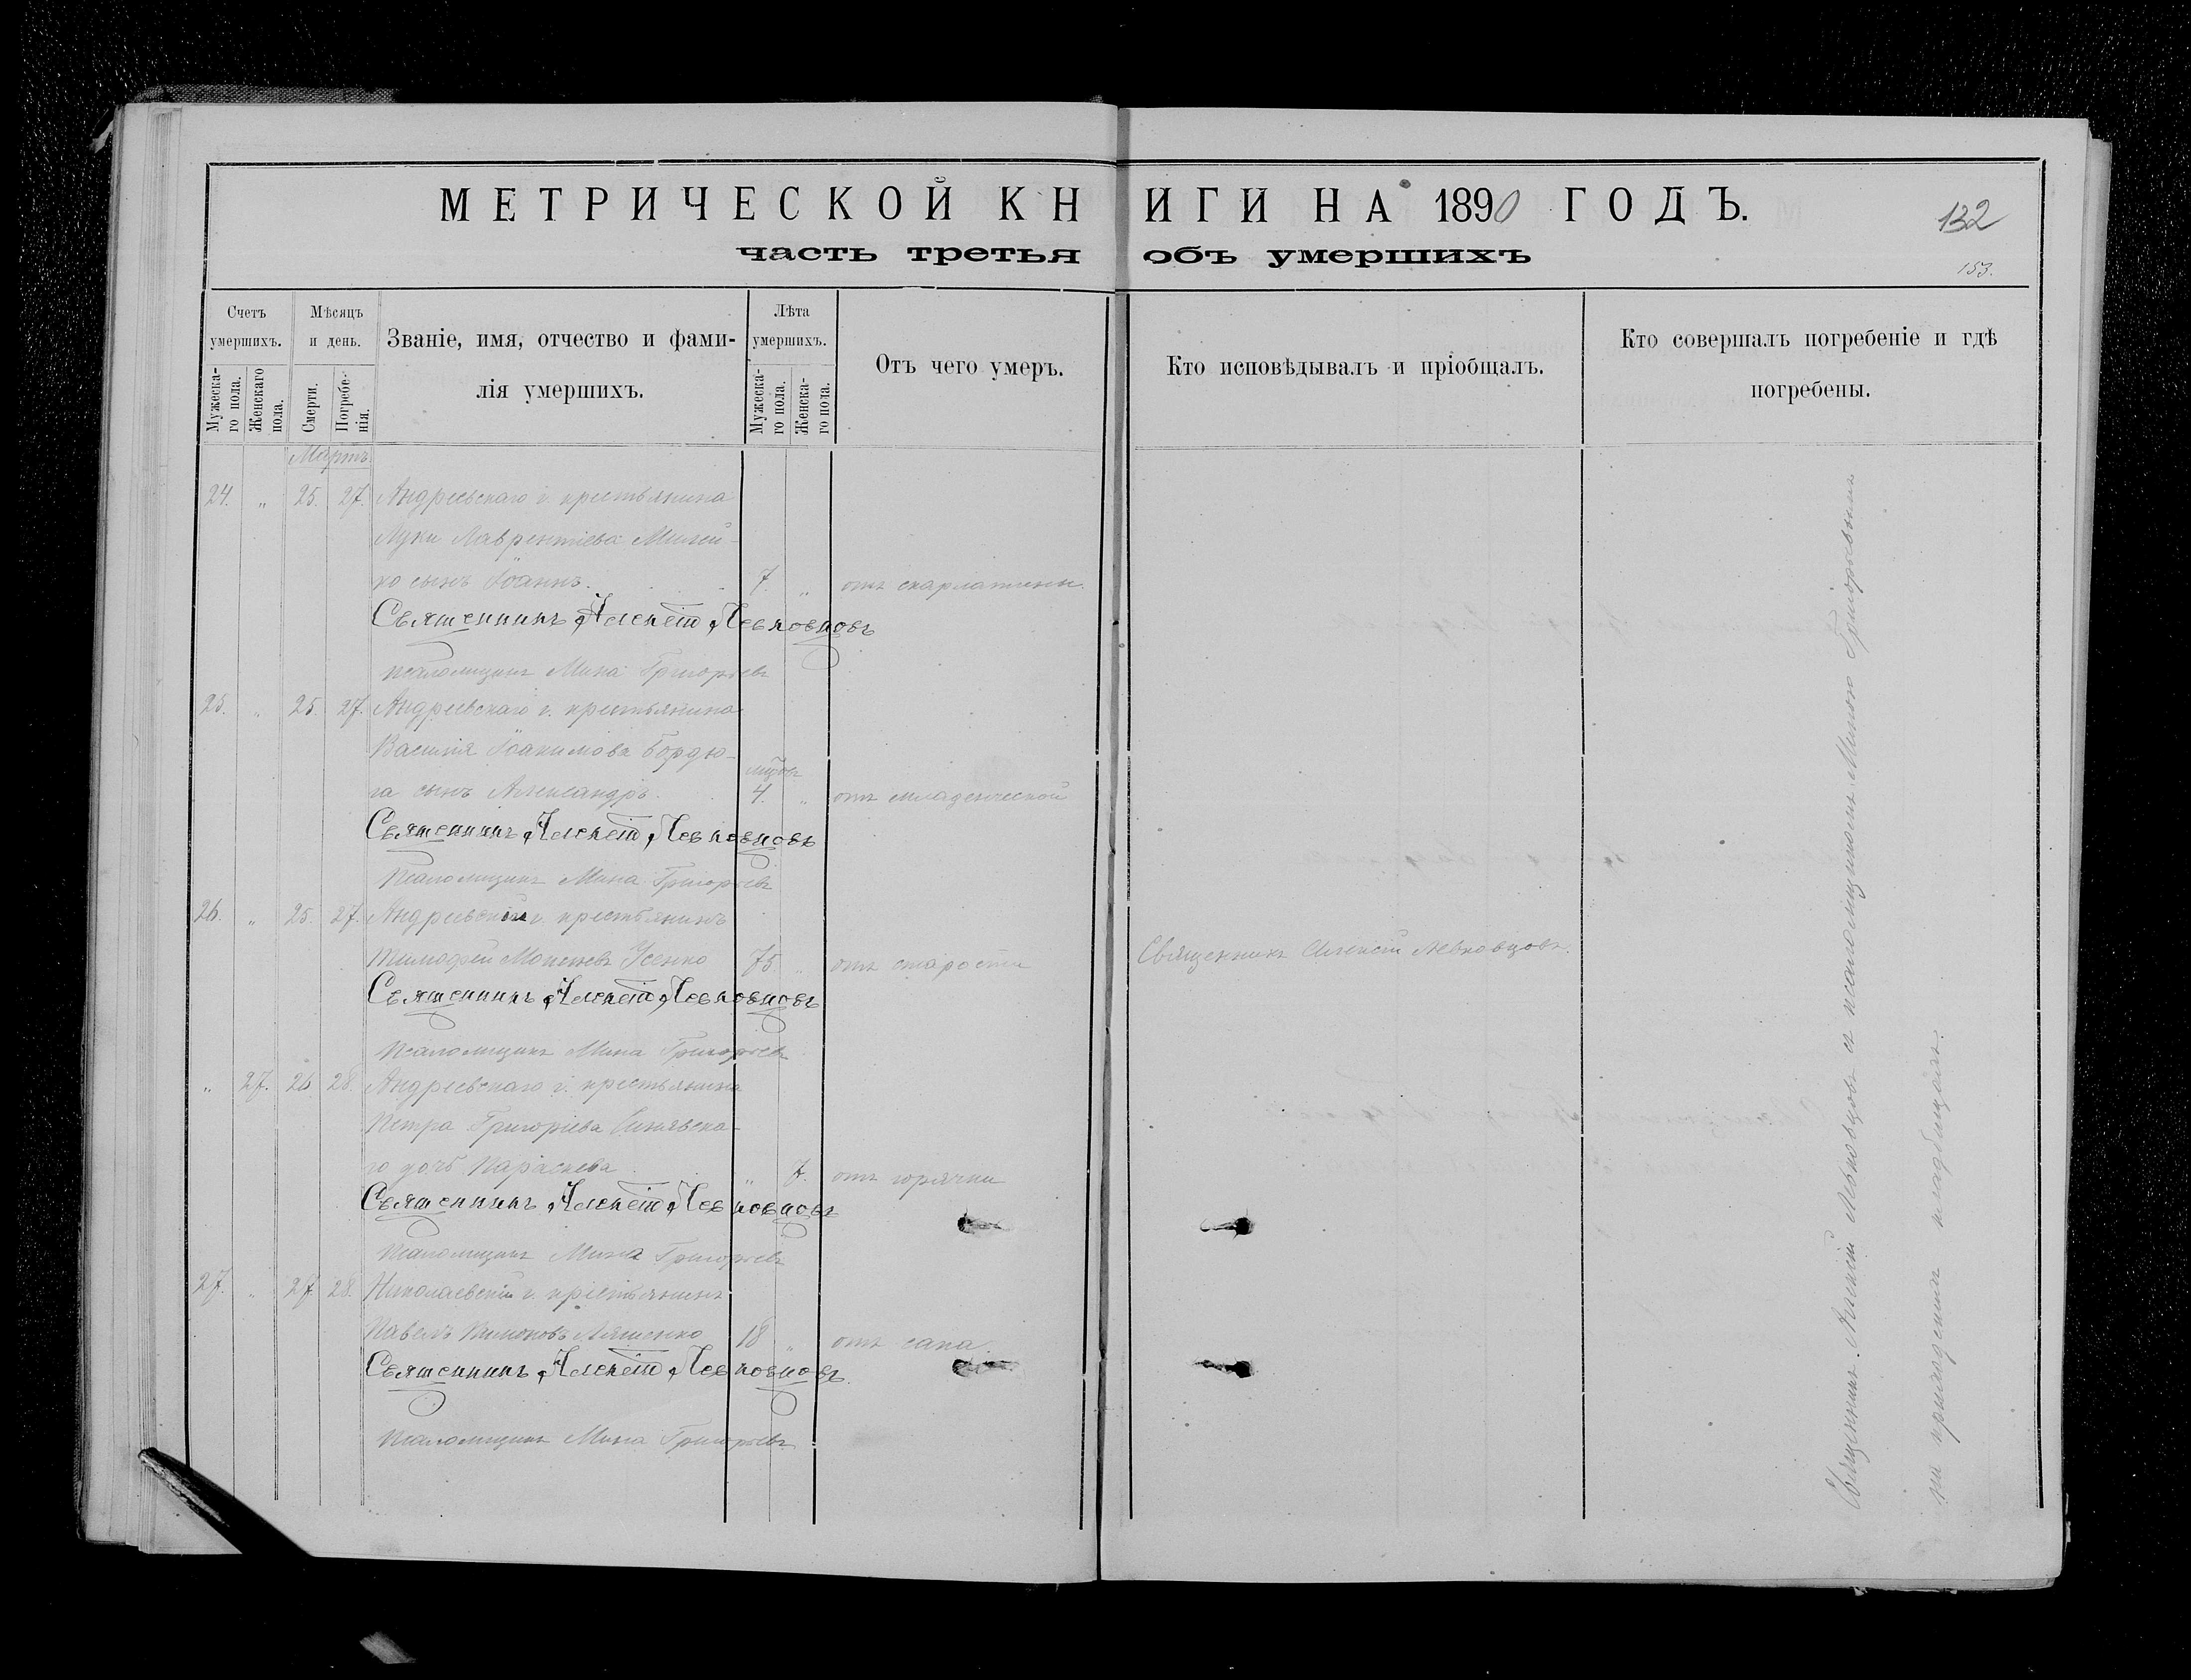 МЕТРИЧЕСКОЙ КНИГИ НА 1890 ГОДЪ.
132
часть третья объ умершихъ
153.
Счетъ умершихъ.
Мужескаго пола.
Женскаго пола.
Мѣсяцъ и день.
Смерти.
Погребенія.
Званіе, имя, отчество и фамилія умершихъ.
Лѣта умершихъ.
Мужескаго пола.
Женскаго пола.
Отъ чего умеръ.
Кто исповѣдывалъ и пріобщалъ.
Кто совершалъ погребеніе и гдѣ погребены.
Мартъ
24. " 25. 27. Андреевскаго с. крестьянина
Луки Лаврентіева
ко сынъ Іоаннъ. 7. " отъ скарлатины.
Священникъ Алексій Левковцовъ
псаломщикъ Мина Григорьевъ
25. " 25. 27. Андреевскаго с. крестьянина
Василія Іоакимова Бордю-
га сынъ Александръ. мѣсяц. 4. " отъ младенческой
Священникъ Алексій Левковцовъ
Псаломщикъ Мина Григорьевъ
26. " 25. 27. Андреевскій с. крестьянинъ
Тимофей Усенко 75 " отъ старости Священникъ Алексій Левковцовъ.
Священникъ Алексій Левковцовъ
Псаломщикъ Мина Григорьевъ
" 27. 26 28. Андреевскаго с. крестьянина
Петра Григоріева Синявска-
го дочь Параскева. " 7. отъ горячки
Священникъ Алексій Левковцовъ
Псаломщикъ Мина Григорьевъ
27. " 27 28. Николаевскій с. крестьянинъ
Павелъ Ляшенко 18 " отъ сапа.
Священникъ Алексій Левковцовъ.
Псаломщикъ Мина Григорьевъ
Священникъ Алексій Левковцовъ съ псаломщикомъ Миною Григорьевымъ
на приходскомъ кладбищѣ.